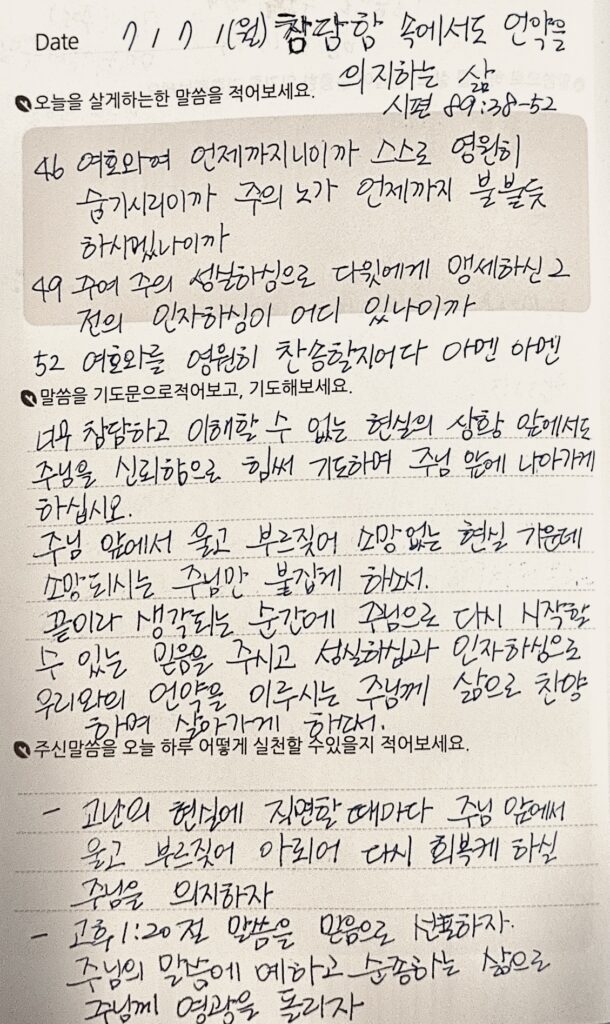 Date 7/7/(월) 참담함 속에서도 언약을
의지하는 삶
오늘을 살게하는한 말씀을 적어보세요.
시편 89:38-52
46 여호와여 언제까지니이까 스스로 영원히
숨기시리이까 주의 노가 언제까지 불붙듯
하시겠나이까
49 주여 주의 성실하심으로 다윗에게 맹세하신 그
전의 인자하심이 어디 있나이까
52 여호와를 영원히 찬송할지어다 아멘 아멘
말씀을 기도문으로적어보고, 기도해보세요.
너무 참담하고 이해할 수 없는 현실의 상황 앞에서도
주님을 신뢰함으로 힘써 기도하며 주님 앞에 나아가게
하십시오.
주님 앞에서 울고 부르짖어 소망없는 현실 가운데
소망되시는 주님만 붙잡게 하소서.
끝이라 생각되는 순간에 주님으로 다시 시작할
수 있는 믿음을 주시고 성실하심과 인자하심으로
우리와의 언약을 이루시는 주님께 삶으로 찬양
하며 살아가게 하소서.
주신말씀을 오늘 하루 어떻게 실천할 수있을지 적어보세요.
- 고난의 현실에 직면할 때마다 주님 앞에서
울고 부르짖어 아뢰어 다시 회복케 하실
주님을 의지하자
- 고후1:20절 말씀을 믿음으로 선포하자.
주님의 말씀에 예하고 순종하는 삶으로
주님께 영광을 돌리자